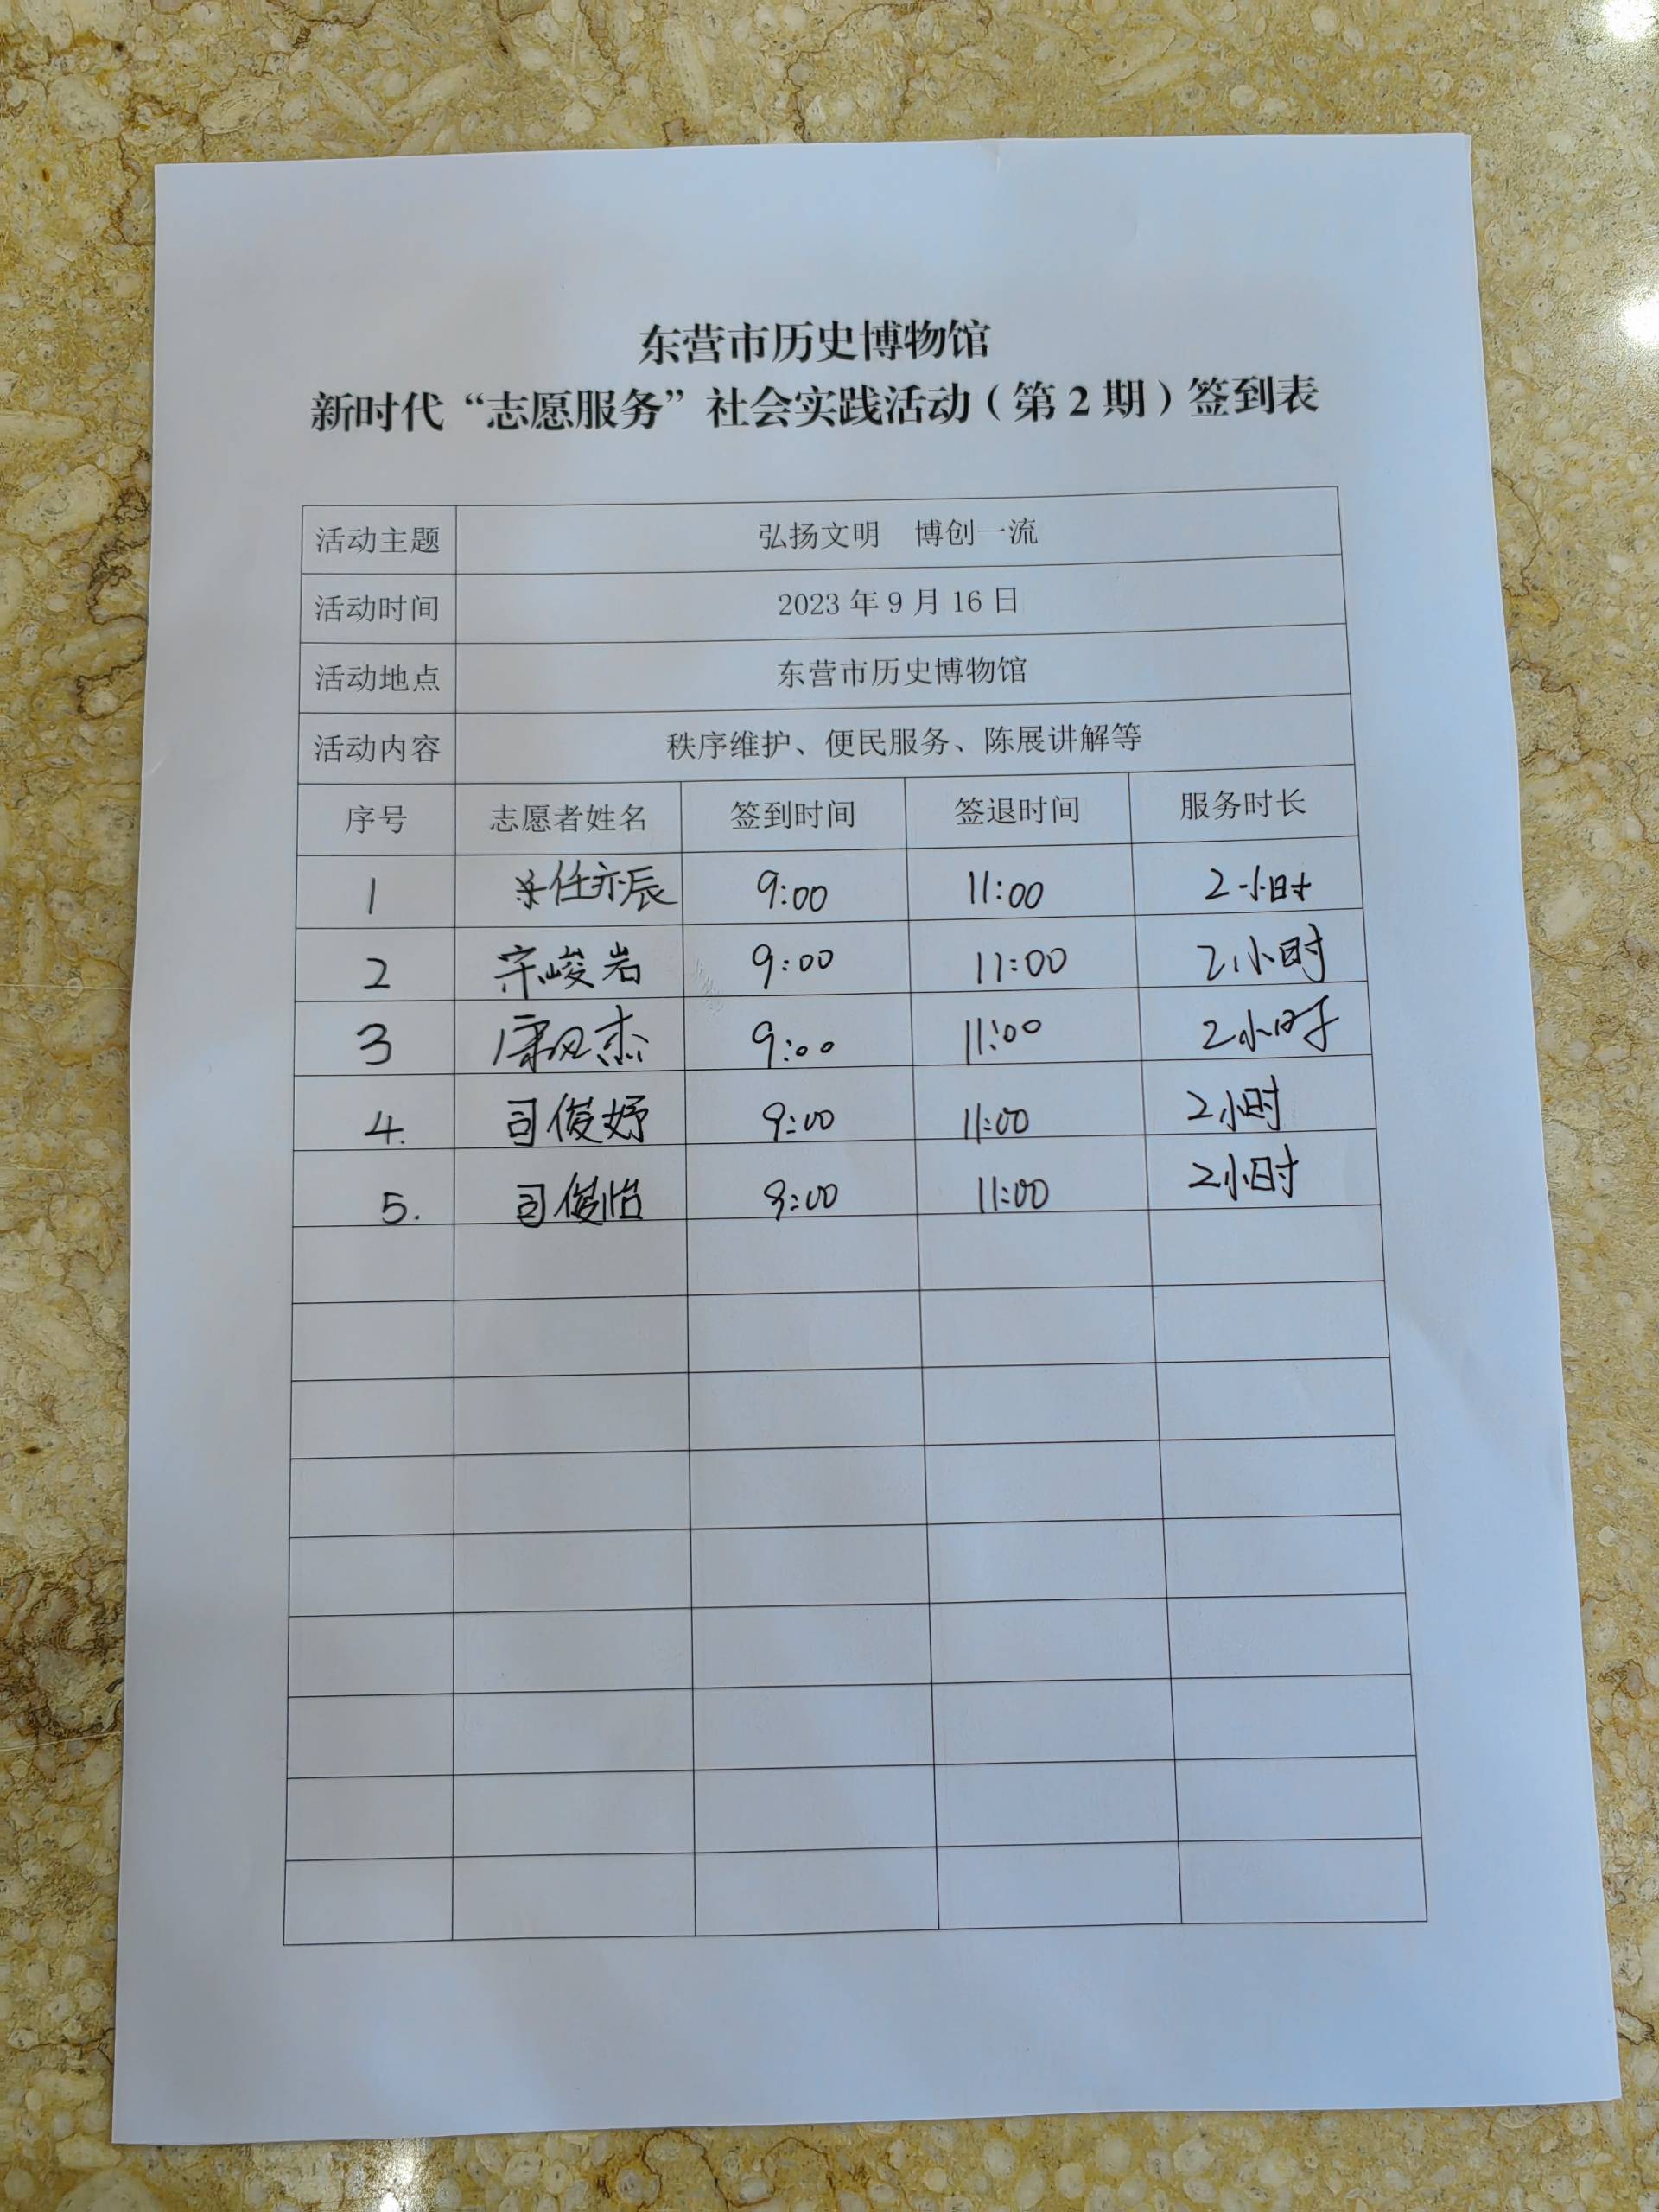 东营市历史博物馆
新时代“志愿服务”社会实践活动（第2期）签到表
活动主题 弘扬文明 博创一流
活动时间 2023年9月16日
活动地点 东营市历史博物馆
活动内容 秩序维护、便民服务、陈展讲解等
序号 志愿者姓名 签到时间 签退时间 服务时长
1 任亦辰 9:00 11:00 2小时
2 峻岩 9:00 11:00 2小时
3 杰 9:00 11:00 2小时
4. 司俊妤 9:00 11:00 2小时
5. 司俊怡 9:00 11:00 2小时